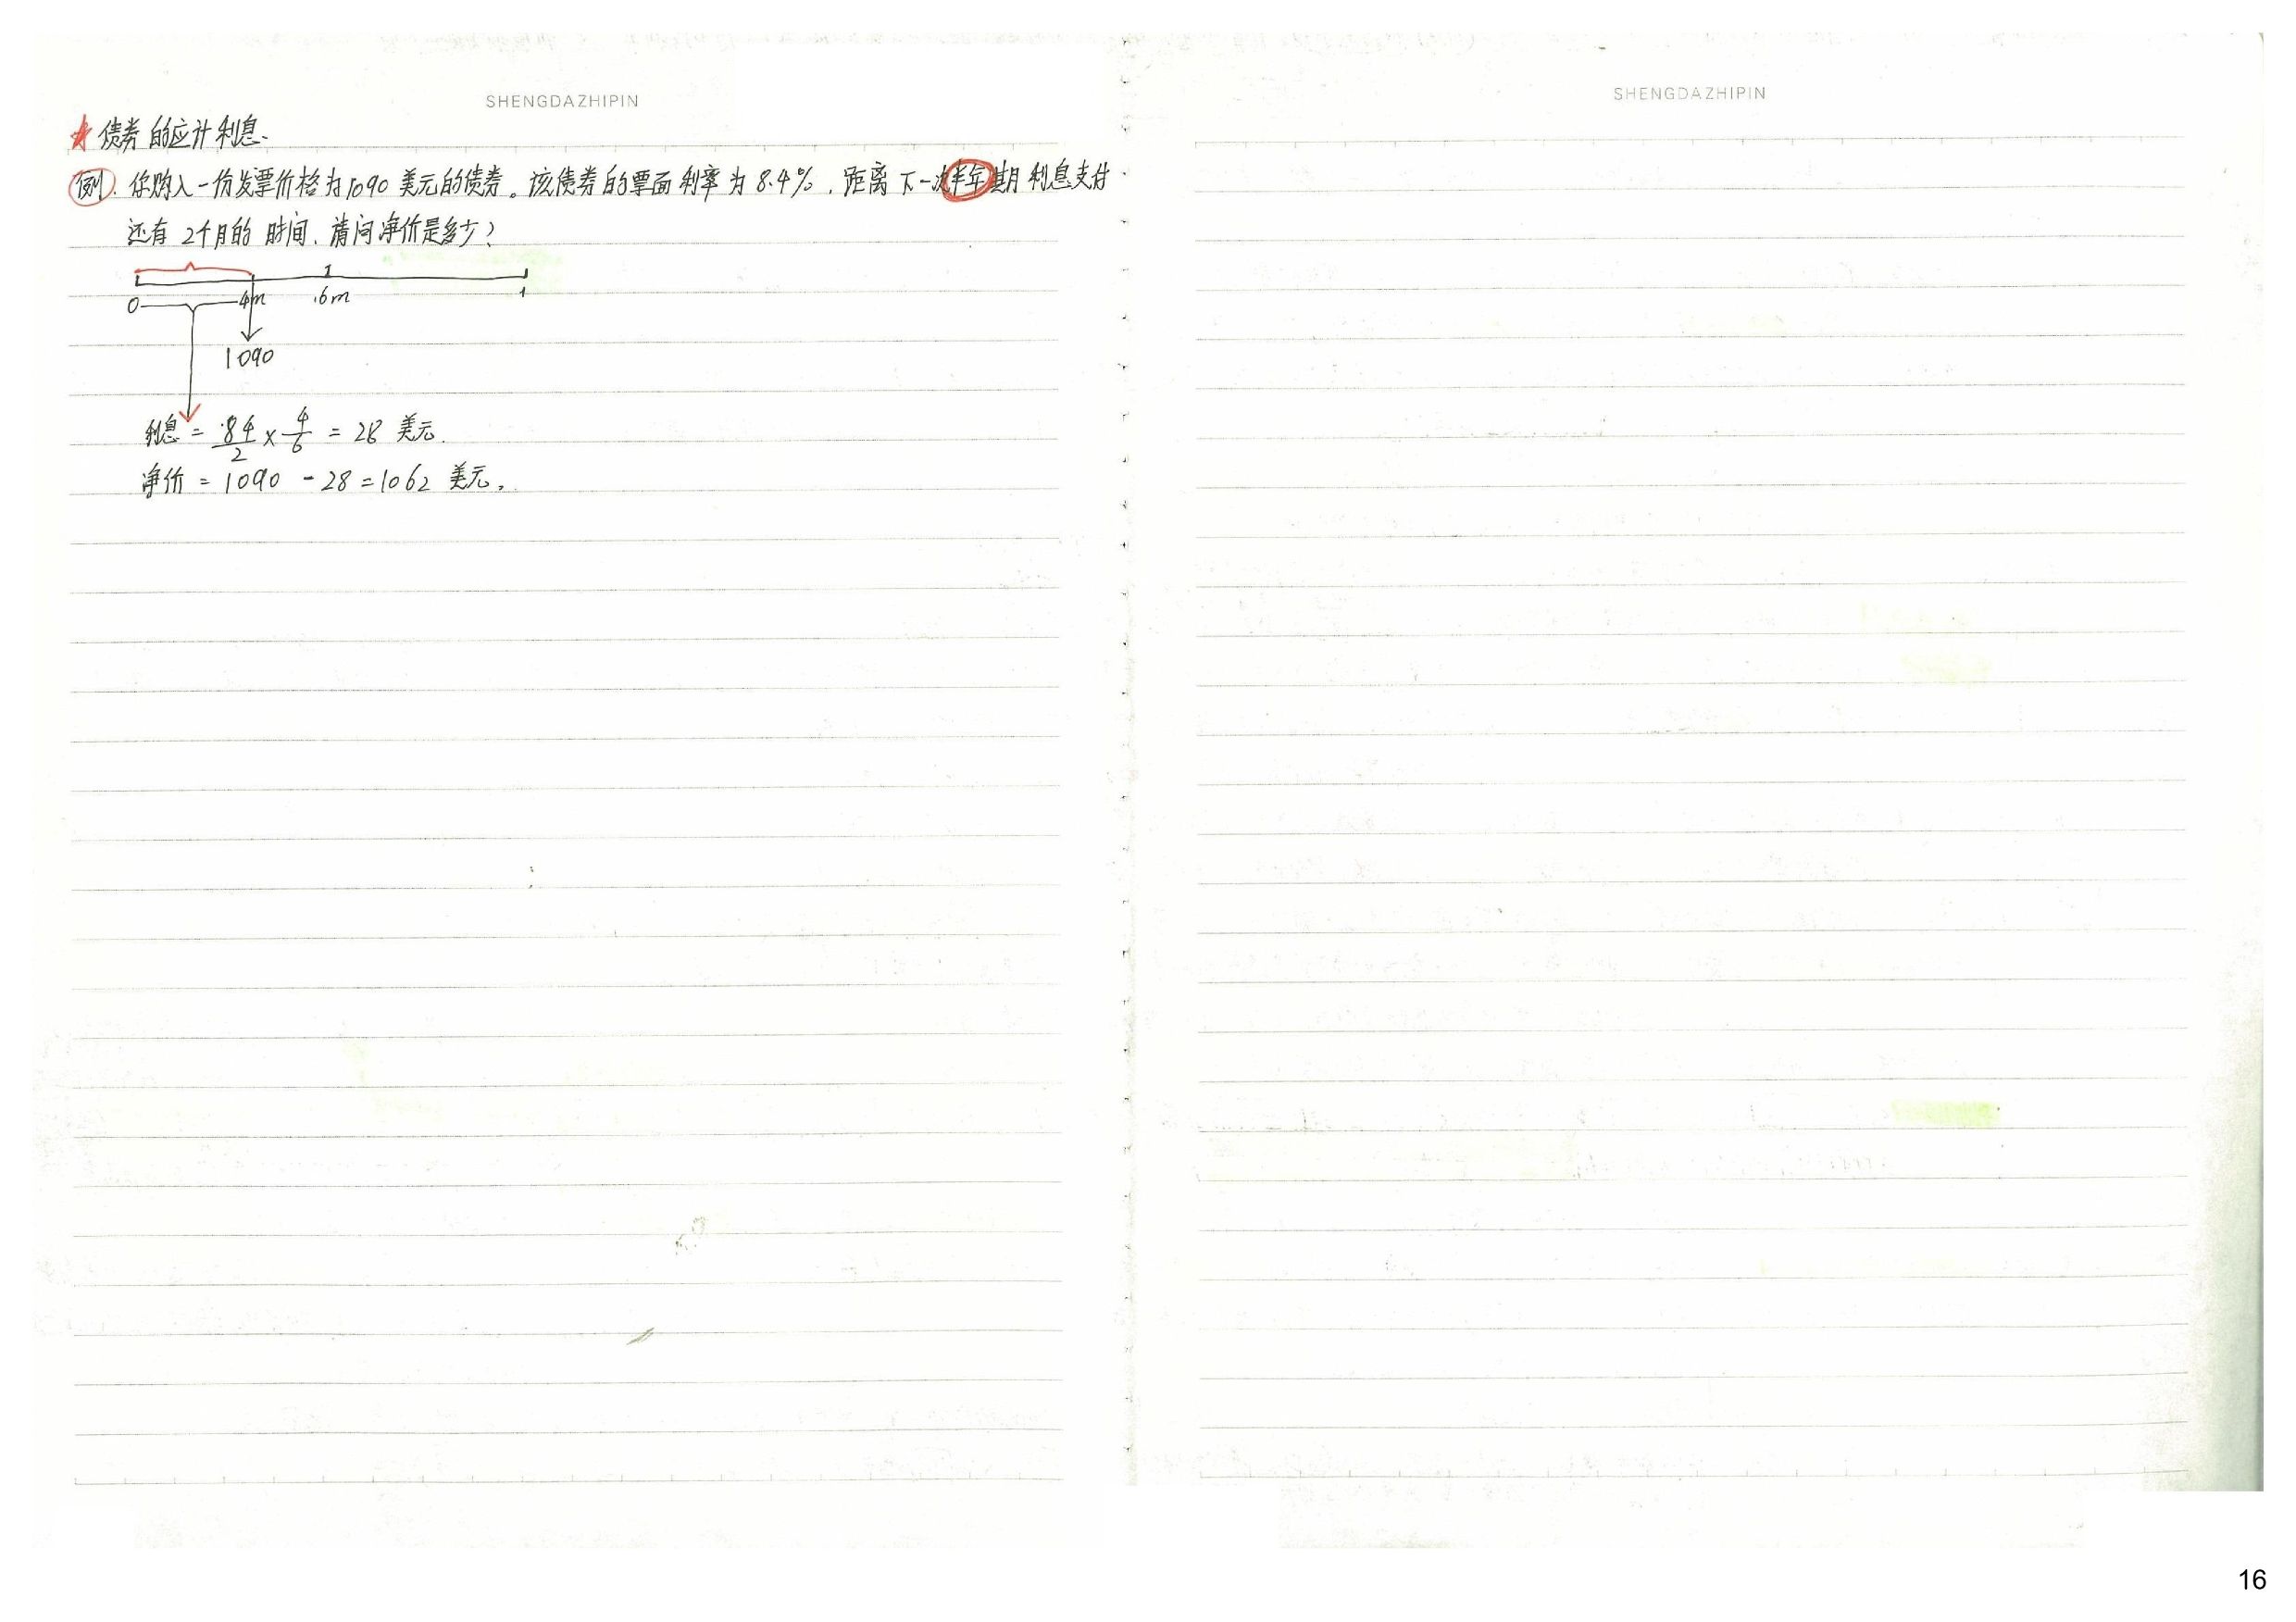 SHENGDAZHIPIN
★ 债券的应计利息、
例. 你购入一份发票价格为1090美元的债券。该债券的票面利率为8.4%,距离下一次半年期利息支付
还有2个月的时间.请问净价是多少?
0 4m 6m 1
1090
利息 = 84/2 × 4/6 = 28 美元.
净价 = 1090 - 28 = 1062 美元.
SHENGDAZHIPIN
16